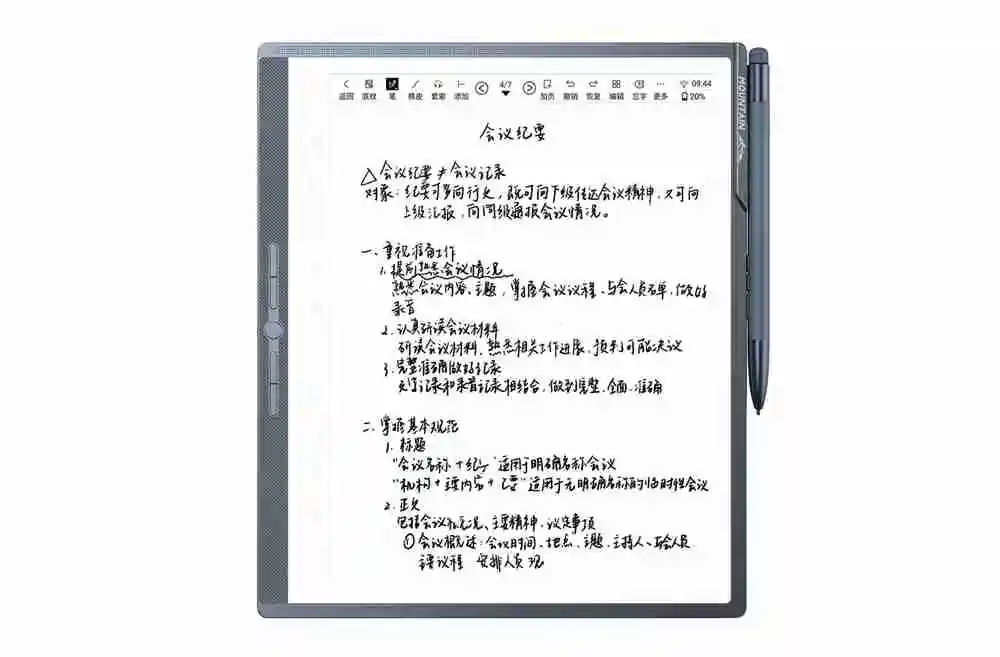 返回 笔 橡皮 套索 添加 4/7 加页 撤销 恢复 编辑 忘字 更多 09:44 20%
MOUNTAIN
会议纪要
△会议纪要≠会议记录
对象：纪要可多向行文，既可向下级传达会议精神，又可向
上级汇报，向同级通报会议情况。
一、重视准备工作
1.提前熟悉会议情况
熟悉会议内容、主题，掌握会议议程、与会人员名单，做好
录音
2.认真研读会议材料
研读会议材料，熟悉相关工作进展，预判可能决议
3.完整准确做好记录
文字记录和录音记录相结合，做到完整、全面、准确
二、掌握基本规范
1.标题
"会议名称+纪要"适用于明确名称会议
"机构+主要内容+纪要"适用于无明确名称的临时性会议
2.正文
包括会议概况、主要精神、议定事项
①会议概述：会议时间、地点、主题、主持人、与会人员
主要议程 安排人员